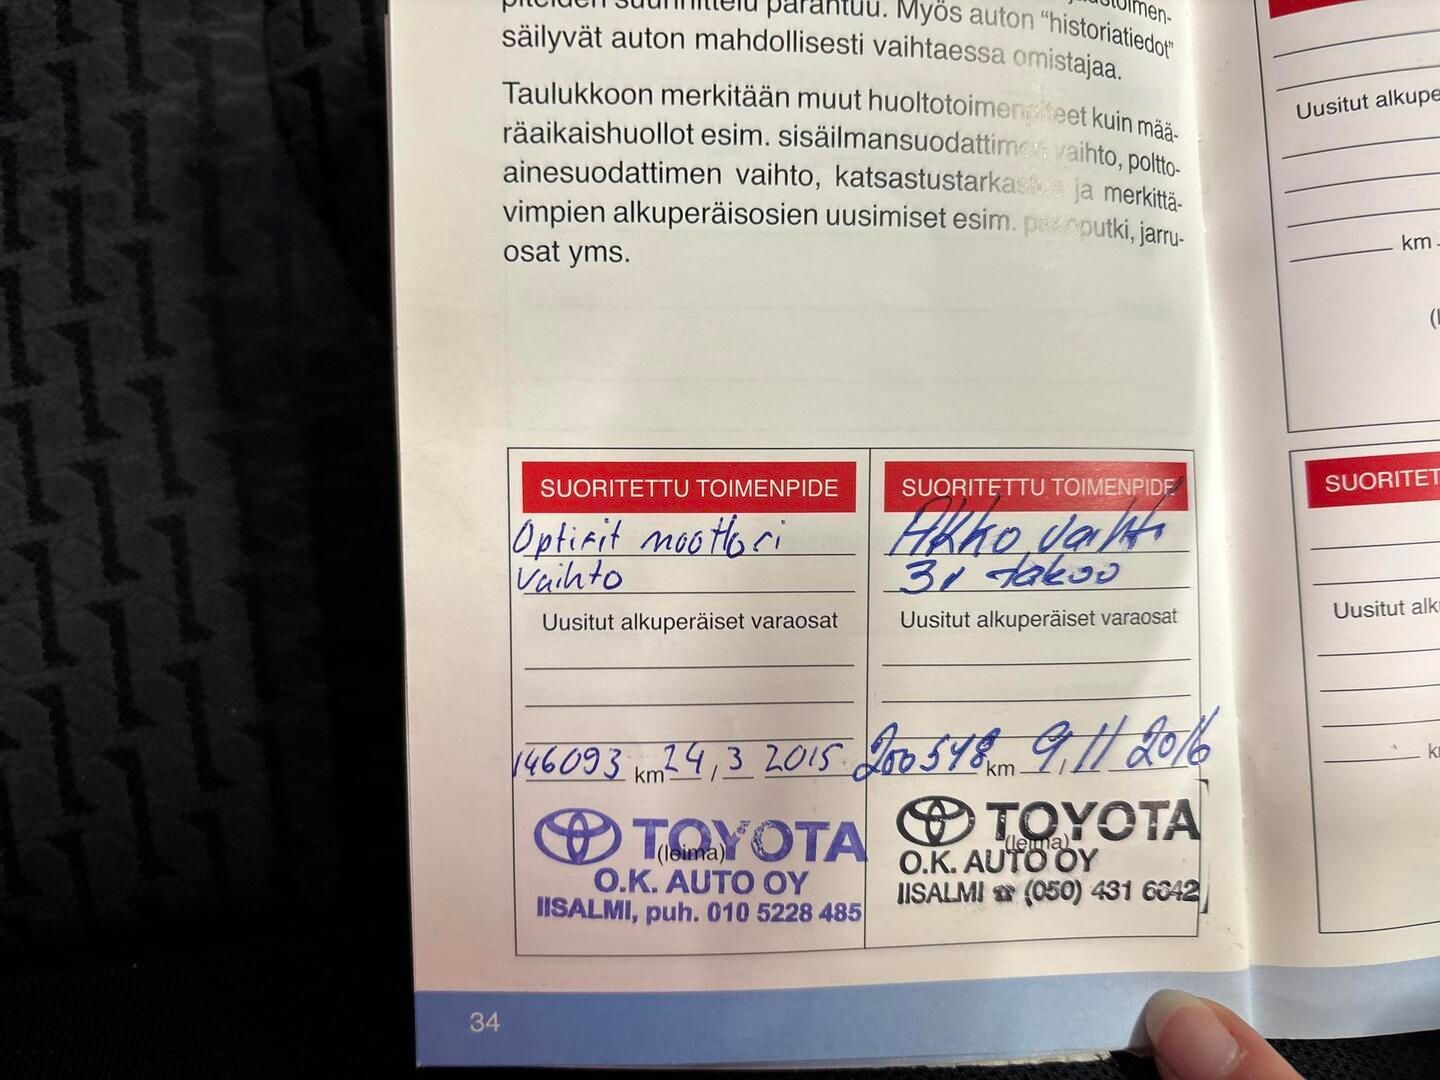 piteiden suunnittelu parantuu. Myös auton "historiatiedot"
säilyvät auton mahdollisesti vaihtaessa omistajaa.
Taulukkoon merkitään muut huoltotoimenpiteet kuin mää-
räaikaishuollot esim. sisäilmansuodattimen vaihto, poltto-
ainesuodattimen vaihto, katsastustarkastus ja merkittä-
vimpien alkuperäisosien uusimiset esim. pakoputki, jarru-
osat yms.
SUORITETTU TOIMENPIDE
Optifit moottori
vaihto
Uusitut alkuperäiset varaosat
146093 km 24 / 3 2015
TOYOTA
(leima)
O.K. AUTO OY
IISALMI, puh. 010 5228 485
SUORITETTU TOIMENPIDE
Akko vaiht
3v takoo
Uusitut alkuperäiset varaosat
200548 km 9 / 11 2016
TOYOTA
(leima)
O.K. AUTO OY
IISALMI ☎ (050) 431 6642
34
Uusitut alkupe
km
SUORITET
Uusitut alk